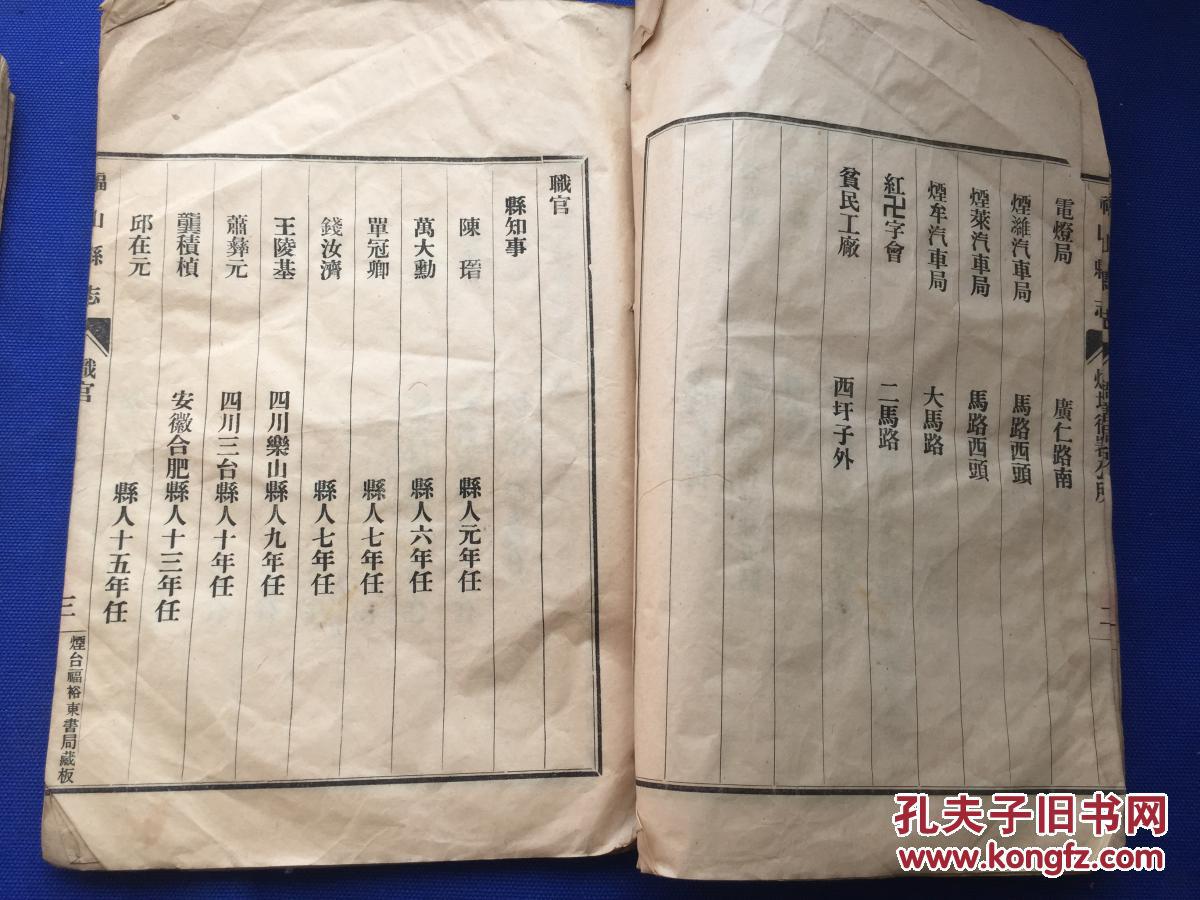 電燈局 廣仁路南
煙濰汽車局 馬路西頭
煙萊汽車局 馬路西頭
煙牟汽車局 大馬路
紅卍字會 二馬路
貧民工廠 西圩子外
二
職官
縣知事
陳瑨 縣人元年任
萬大勳 縣人六年任
單冠卿 縣人七年任
錢汝濟 縣人七年任
王陵基 四川樂山縣人九年任
蕭彝元 四川三台縣人十年任
龔積楨 安徽合肥縣人十三年任
邱在元 縣人十五年任
福山縣志 職官 三 煙台福裕東書局藏板
孔夫子旧书网
www.kongfz.com